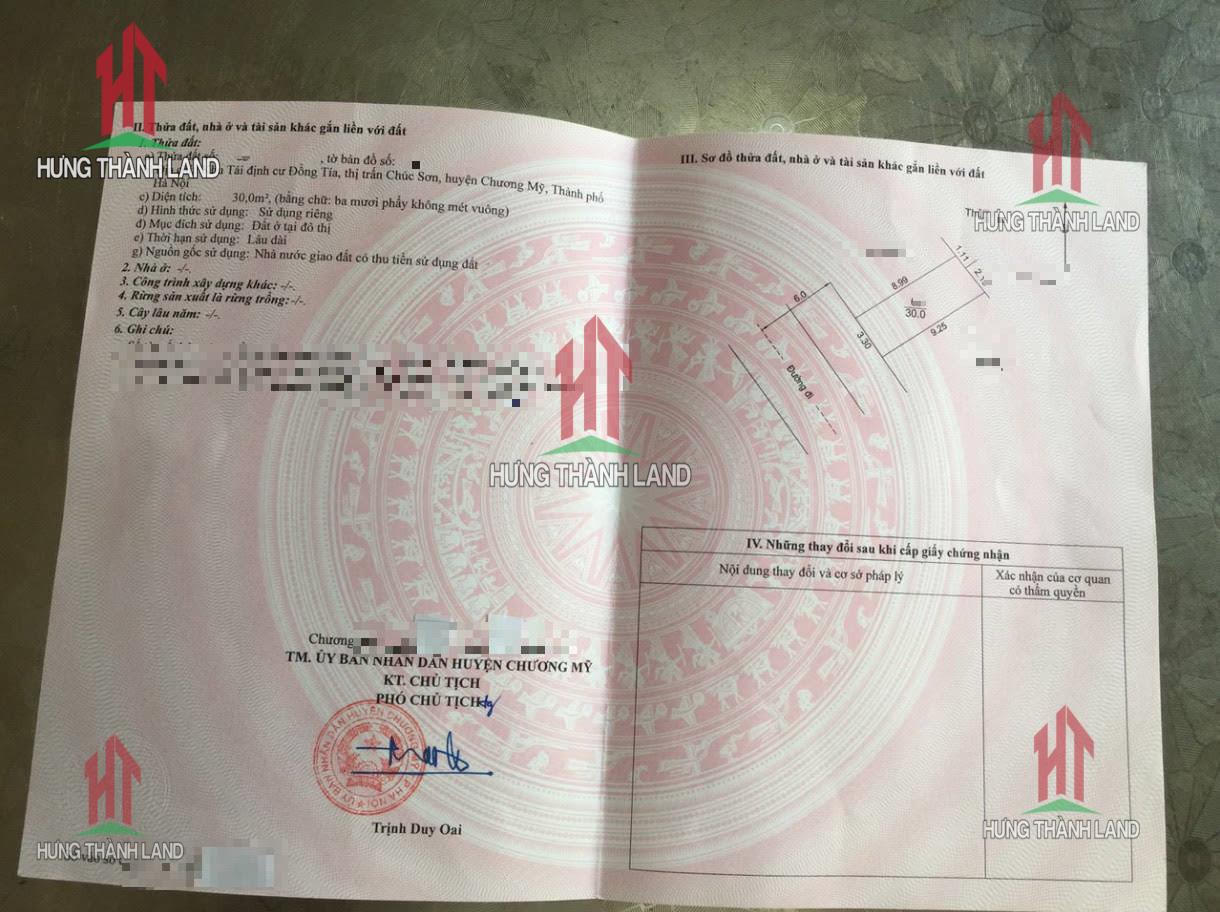 HƯNG THÀNH LAND
II. Thửa đất, nhà ở và tài sản khác gắn liền với đất
1. Thửa đất:
, tờ bản đồ số:
Tái định cư Đồng Tía, thị trấn Chúc Sơn, huyện Chương Mỹ, Thành phố
Hà Nội
c) Diện tích: 30,0m², (bằng chữ: ba mươi phẩy không mét vuông)
d) Hình thức sử dụng: Sử dụng riêng
đ) Mục đích sử dụng: Đất ở tại đô thị
e) Thời hạn sử dụng: Lâu dài
g) Nguồn gốc sử dụng: Nhà nước giao đất có thu tiền sử dụng đất
2. Nhà ở: -/-.
3. Công trình xây dựng khác: -/-.
4. Rừng sản xuất là rừng trồng: -/-.
5. Cây lâu năm: -/-.
6. Ghi chú:
HƯNG THÀNH LAND
Chương
TM. ỦY BAN NHÂN DÂN HUYỆN CHƯƠNG MỸ
KT. CHỦ TỊCH
PHÓ CHỦ TỊCH
ỦY BAN NHÂN DÂN HUYỆN CHƯƠNG MỸ T.P HÀ NỘI
Trịnh Duy Oai
HƯNG THÀNH LAND
III. Sơ đồ thửa đất, nhà ở và tài sản khác gắn liền với đất
HƯNG THÀNH LAND
1.11
8.99
6.0
30.0
9.25
3.30
Đường đi
IV. Những thay đổi sau khi cấp giấy chứng nhận
Nội dung thay đổi và cơ sở pháp lý
Xác nhận của cơ quan
có thẩm quyền
HƯNG THÀNH LAND